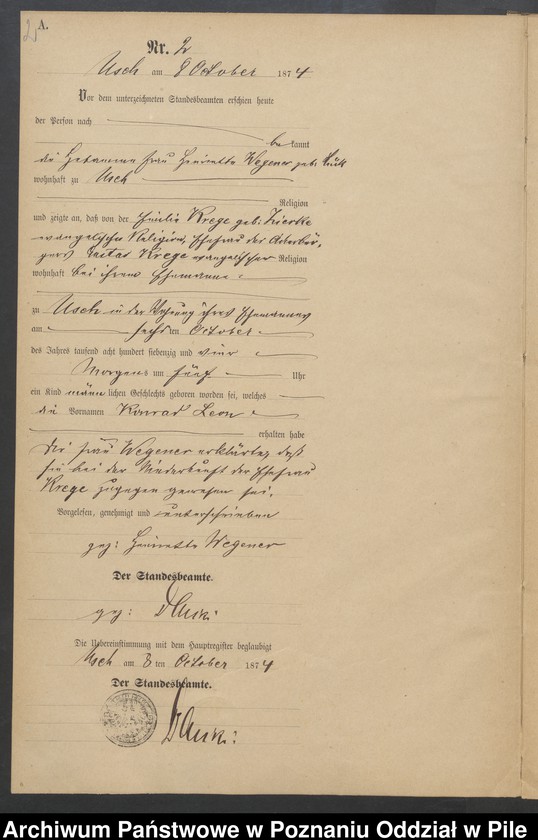 2
A.
Nr. 2
Usch am 8 October 1874
Vor dem unterzeichneten Standesbeamten erschien heute
der Person nach
be kannt
die Hebamme Frau Henriette Wegener geb:
wohnhaft zu Usch
Religion
und zeigte an, daß von der Emilie Krege geb:
evangelischer Religion, Ehefrau des Ackerbür,
gers Krege evangelischer Religion
wohnhaft bei ihrem Ehemanne
zu Usch in der Wohnung ihres Ehemannes
am sechs ten October
des Jahres tausend acht hundert siebenzig und vier
Morgens um fünf Uhr
ein Kind männ lichen Geschlechts geboren worden sei, welches
die Vornamen Konrad Leon
erhalten habe
Die Frau Wegener erklärte, daß
sie bei der Niederkunft der Ehefrau
Krege zugegen gewesen sei.
Vorgelesen, genehmigt und unterschrieben
gez: Henriette Wegener
Der Standesbeamte.
gez:
Die Uebereinstimmung mit dem Hauptregister beglaubigt
Usch am 8 ten October 1874
Der Standesbeamte.
Archiwum Państwowe w Poznaniu Oddział w Pile